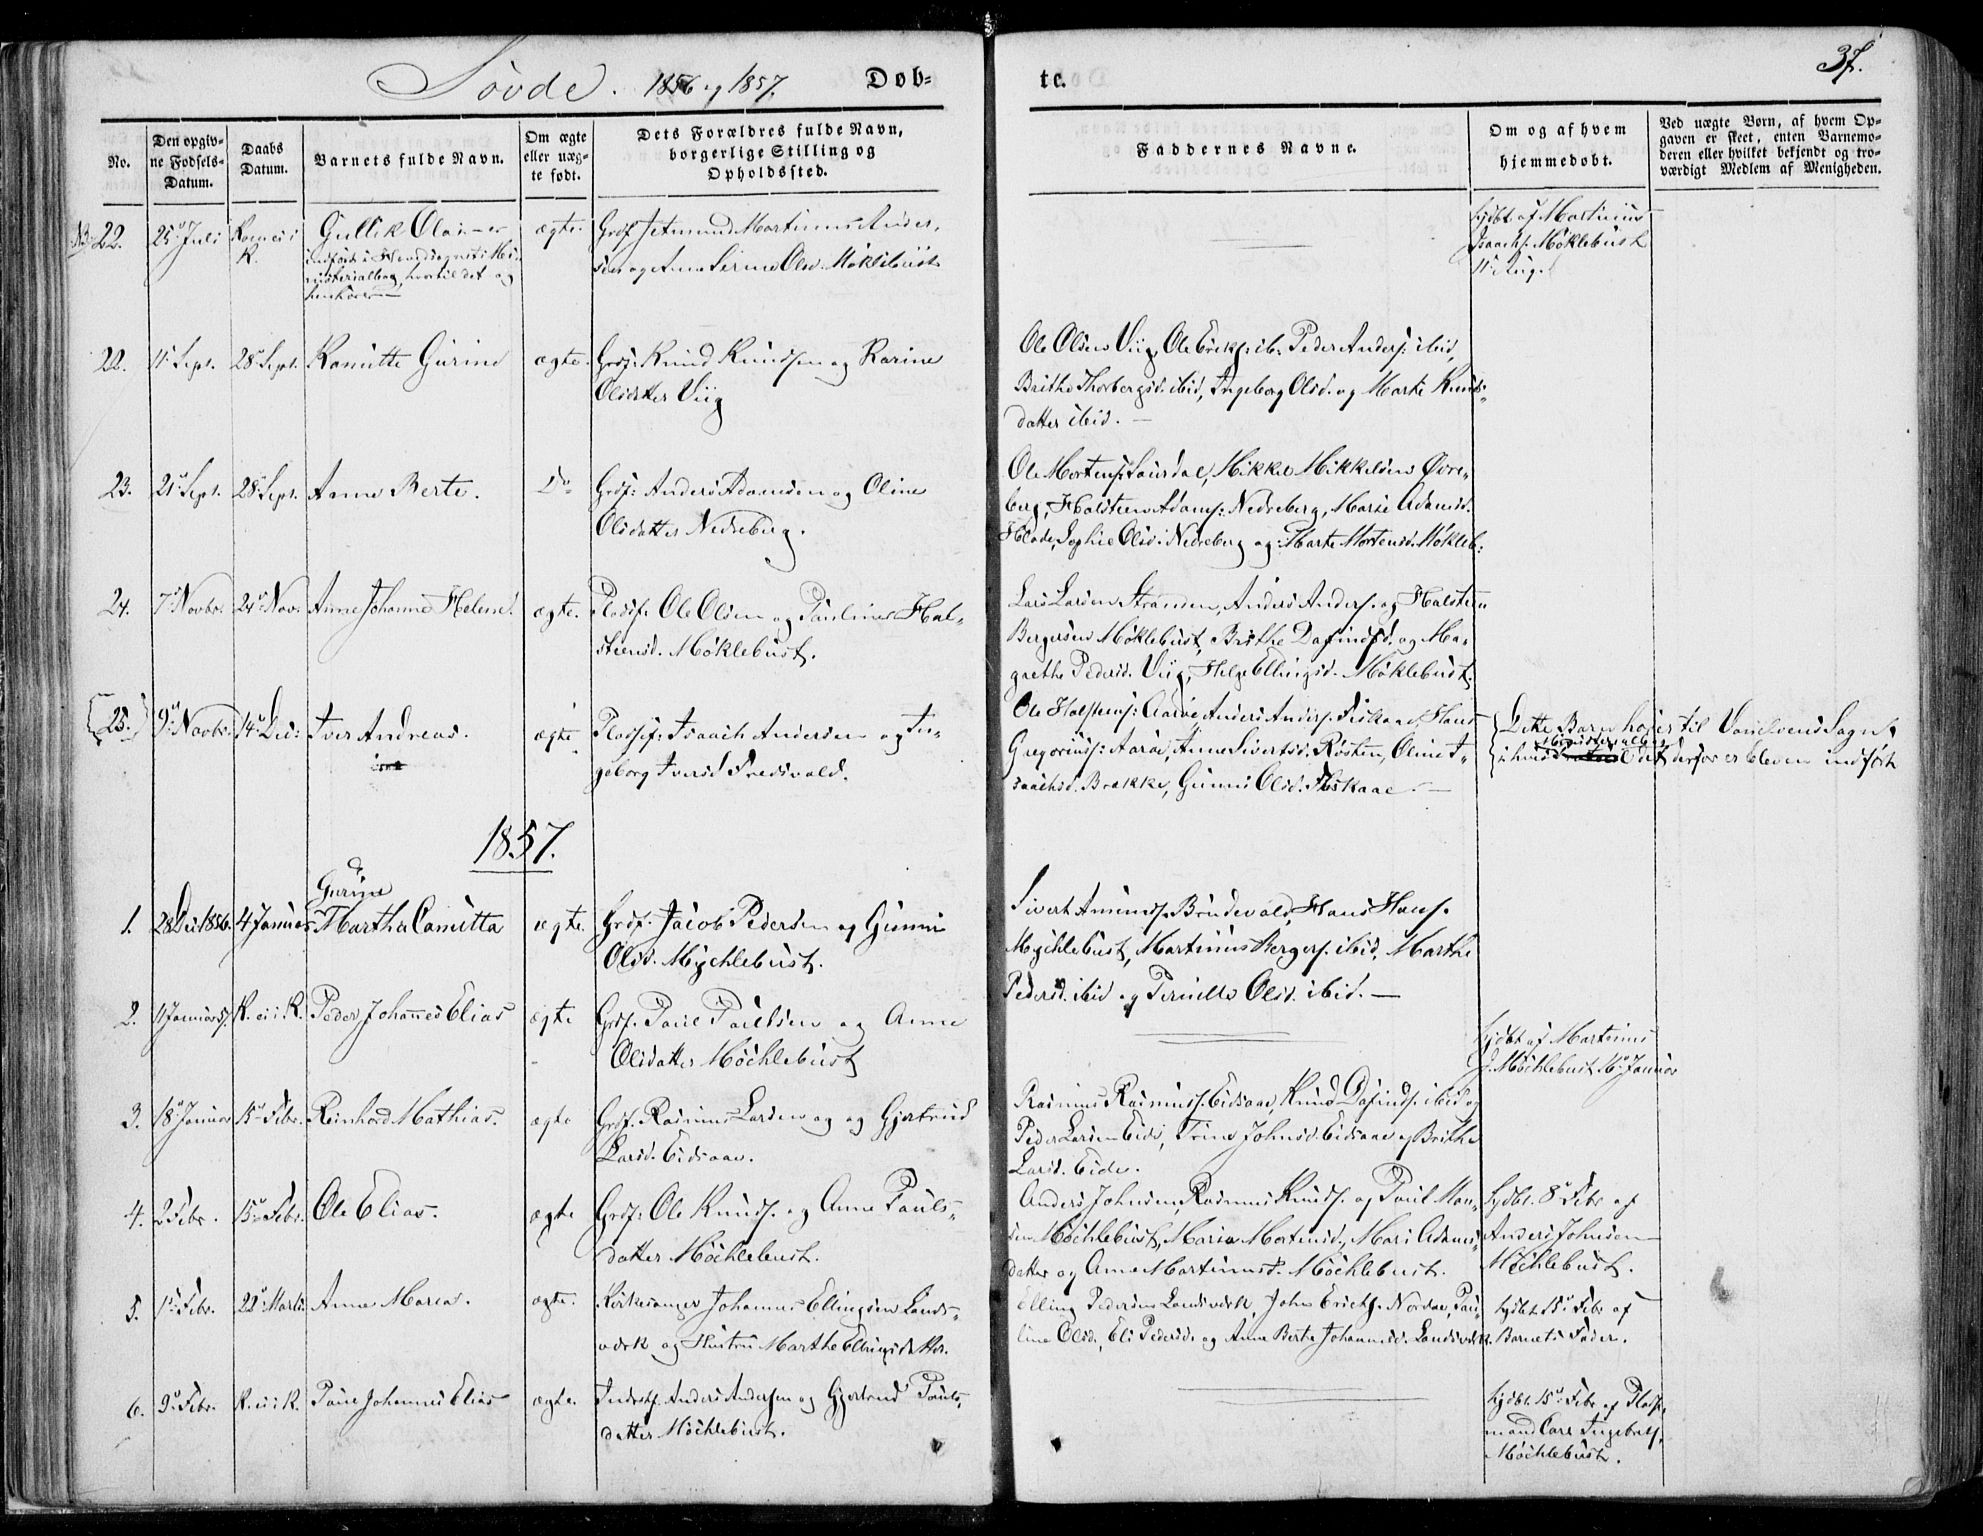 Søvde. 1856 og 1857. Døb=
te. 37.
No.
Den opgiv-
ne Fødsels-
Datum.
Daabs
Datum.
Barnets fulde Navn.
Om ægte
eller uæg-
te født.
Dets Forældres fulde Navn,
borgerlige Stilling og
Opholdssted.
Faddernes Navne.
Om og af hvem
hjemmedøbt.
Ved uægte Børn, af hvem Op-
gaven er skeet, enten Barnemo-
deren eller hvilket bekjendt og tro-
værdigt Medlem af Menigheden.
22. 25 Juli
K.
Gullik Olai
henhører
ægte.
Martinus Anders,
Olsd. Møklebust
Hjdbt af Martinus
Isaachs. Møklebust
11 Aug.
22. 11 Sept. 28 Sept. Kanutte Gurine ægte. Grdf: Knud Knudsen og Karine
Olsdatter Viig
Ole Olsen Viig, Ole Eriks. ib. Peder Anders: ibid,
Brithe Thorbergsd. ibid, Ingeborg Olsd. og Marte Knuds-
datter ibid. —
23. 21 Sept. 28 Sept. Anne Berte. Do Grdf: Anders Adamsen og Oline
Olsdatter Nedreberg.
Ole Mortens. Saurdal, Mikkel Mikkelsen Øvre-
berg, Halsteen Adams: Nedreberg, Marie Adamsd.
Sophie Olsd. Nedreberg og Marte Mortensd. Møkleb:
24. 7 Novbr. 24 Nov. Anne Johanne Helene. ægte. Pladsf: Ole Olsen og Pauline Hal-
steensd. Møklebust.
Lars Larsen Stranden, Anders Anders. og Halsteen
Bergersen Møklebust, Brithe Dafindsd. og Ma-
grethe Pedersd. Viig, Helge Ellingsd. Møklebust.
25. 9 Novbr. 14 Dec: Iver Andreas. ægte Pladsf: Isaach Andersen og In-
geborg Iversd Fredsvold.
Ole Halsteens: Aarøe, Anders Anders. Fiskaae, Hans
Gregorius: Aarøe, Anne Sivertsd. Røsten, Oline I-
saachsd. Brække, Gunni Olsd. Fiskaae. —
Dette Barn hører til Vanelvens Sogn,
i hvis Ministerialbog det derfor er bleven indført
1857.
Gurine
1. 28 Dec: 1856. 4 Januar Martha Canutta ægte. Grdf. Jacob Pedersen og Gunni
Olsd. Mychlebust.
Sivert Amunds. Brudevold, Hans Hans.
Mychlebust, Martinus Bergers. ibid, Marthe
Pedersd. ibid og Pernille Olsd. ibid. —
2. 1 Januar 57. K. ei i K. Peder Johannes Elias ægte Grdf. Paul Paulsen og Anne
Olsdatter Møchlebust
Hjdbt af Martinus
J. Møchlebust 16 Januar
3. 18 Januar 15 Febr. Reinhard Mathias. ægte Grdf. Rasmus Larsen og og Gjertrud
Larsd. Eidsaae.
Rasmus Rasmuss. Eidsaae, Knud Dafinds. ibid og
Peder Larsen Eide, Trine Johnsd. Eidsaae og Brithe
Larsd. Eide.
4. 2 Febr. 15 Febr. Ole Elias. ægte Grdf: Ole Knuds. og Anne Pauls-
datter Møchlebust.
Anders Johnsen, Rasmus Knuds. og Paul Han-
sen Møchlebust, Maria Mortensd., Mari Adams-
datter og Anne Martinusd. Møchlebust.
Hjdbt. 8 Febr af
Anders Johnsen
Møchlebust.
5. 1 Febr. 22 Marts Anne Maria. ægte. Kirkesanger Johannes Ellingsen Lands-
værk og Hustru Marthe Ellingsdatter.
Elling Pedersen Landsværk, John Erichs. Nordøe, Pau-
line Olsd., Eli Pedersd. og Anne Berthe Johannesd. Landsværk.
Hjdbt. 15 Febr af
Barnets Fader.
6. 9 Febr. K. ei i K. Paul Johannes Elias ægte. Inderstf. Anders Andersen og Gjertrud Pauls-
datter Møchlebust.
Hjdbt. 15 Febr af Plads-
mand Carl Ingebrets.
Møchlebust.